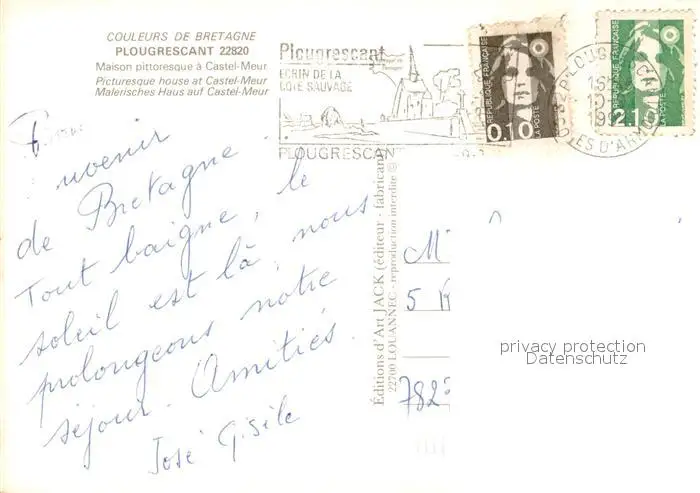 COULEURS DE BRETAGNE
PLOUGRESCANT 22820
Maison pittoresque à Castel-Meur
Picturesque house at Castel-Meur
Malerisches Haus auf Castel-Meur
Plougrescant
ECRIN DE LA
COTE SAUVAGE
PLOUGRESCANT
REPUBLIQUE FRANÇAISE
0,10
LA POSTE
REPUBLIQUE FRANÇAISE
2,10
LA POSTE
D'ARMOR
Souvenir
de Bretagne.
Tout baigne, le
soleil est là, nous
prolongeons notre
séjour. Amitiés.
José Gisèle
Editions d'Art JACK (éditeur - fabricant)
22700 LOUANNEC - reproduction interdite ©
M
5
782
privacy protection
Datenschutz